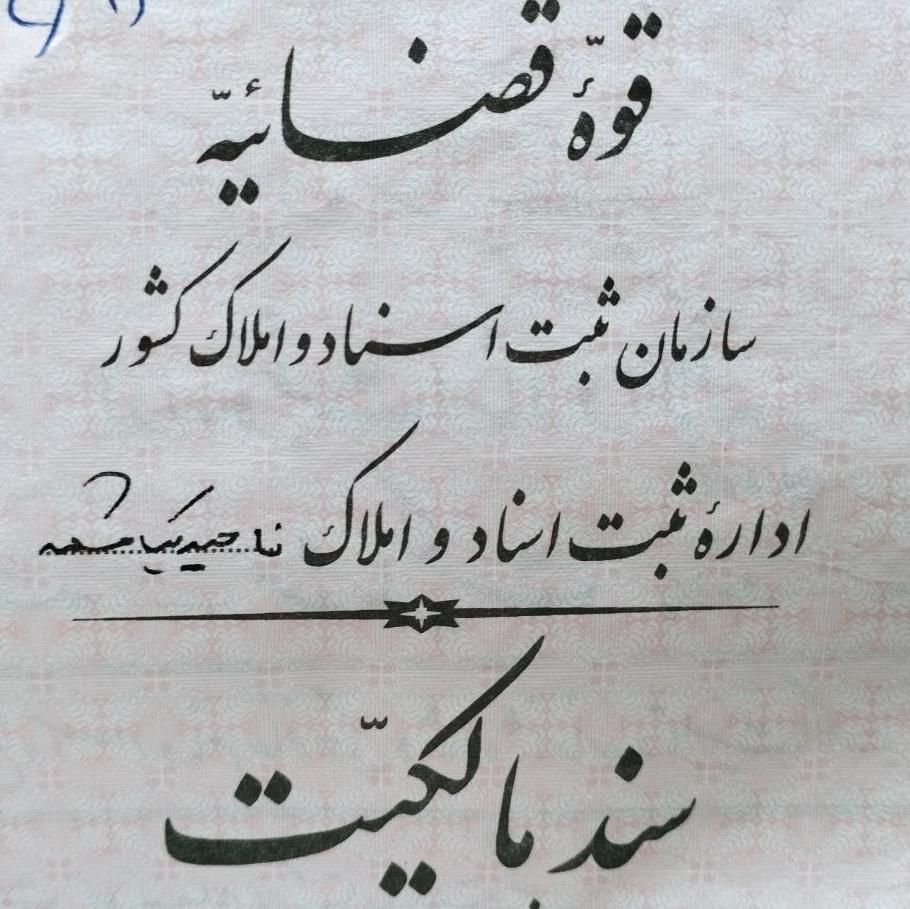 قوّهٔ قضائیّه
سازمان ثبت اسناد و املاک کشور
ادارهٔ ثبت اسناد و املاک
سند مالکیّت